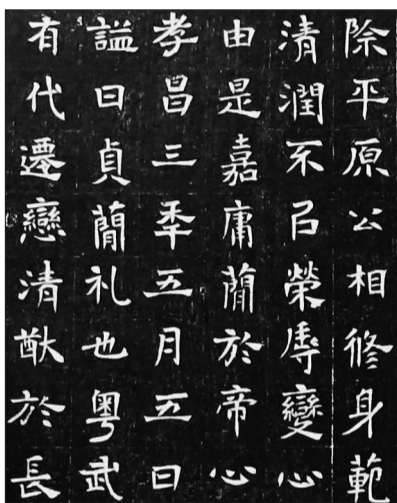 除平原公相修身範
清潤不㠯榮辱變心
由是嘉庸蕳於帝心
孝昌三秊五月五日
謚曰貞蕳礼也粤武
有代遷戀清猷於長